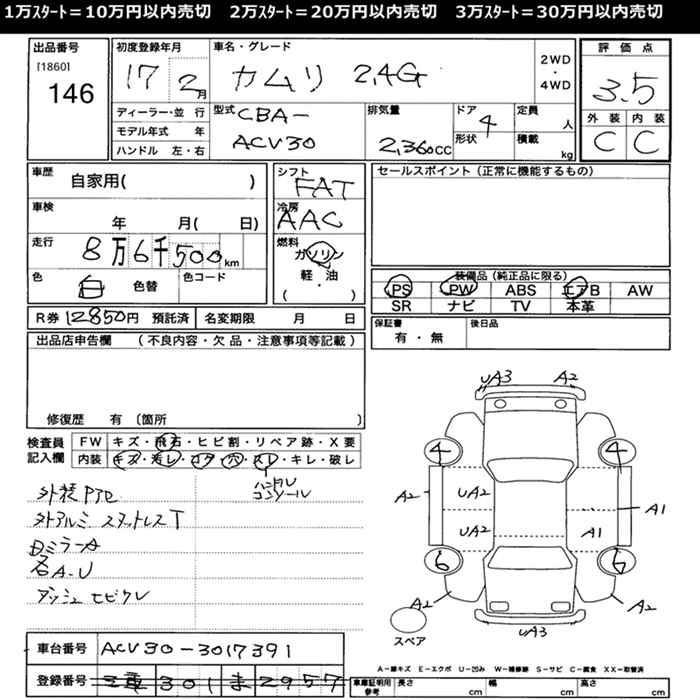 1万スタート＝10万円以内売切　2万スタート＝20万円以内売切　3万スタート＝30万円以内売切
出品番号
[1860]
146
初度登録年月
17 2月
車名・グレード
カムリ 2,4G
2WD
・
4WD
評価点
3.5
外装 内装
C C
ディーラー・並 行
モデル年式 年
ハンドル 左・右
型式 CBA-
ACV30
排気量
2,360CC
ドア 4
形状
定員
人
積載
kg
車歴
自家用( )
車検
年 月( 日)
走行
8万6千500km
色 白 色替
色コード
シフト
FAT
冷房
AAC
燃料
ガソリン
軽・油
( )
セールスポイント（正常に機能するもの）
装備品（純正品に限る）
PS PW ABS エアB AW
SR ナビ TV 本革
R券 12850円 預託済
名変期限 月 日
保証書
有・無
後日品
出品店申告欄 （不良内容・欠品・注意事項等記載）
修復歴 有 〔箇所 〕
検査員
記入欄
FW キズ・飛石・ヒビ割・リペア跡・X要
内装 キズ・汚レ・コゲ・穴・スレ・キレ・破レ
ハンドル
コンソール
外装Pアセ
外アルミ スタットレスT
ミラーA
A-U
ヒビワレ
UA3 A2
4 4
A2 UA2 A1
UA2 A1
6 6
A2 A2
UA3
スペア
車台番号 ACV30-3017391
登録番号 三重 301 ま 2957
A－線キズ E－エクボ U－凹み W－補修跡 S－サビ C－腐食 XX－取替済
車庫証明用
参考
長さ cm
幅 cm
高さ cm